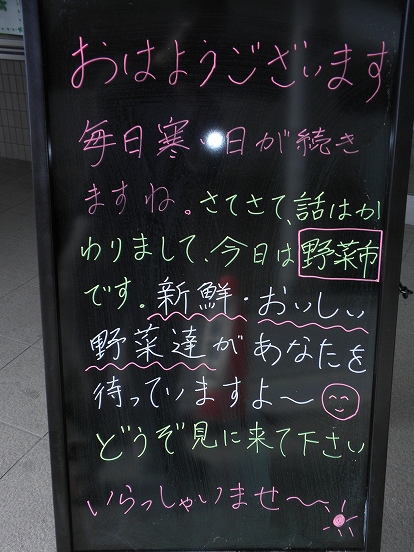 おはようございます
毎日寒い日が続き
ますね。さてさて、話はか
わりまして、今日は野菜市
です。新鮮・おいしい
野菜達があなたを
待っていますよ〜
どうぞ見に来て下さい
いらっしゃいませ〜